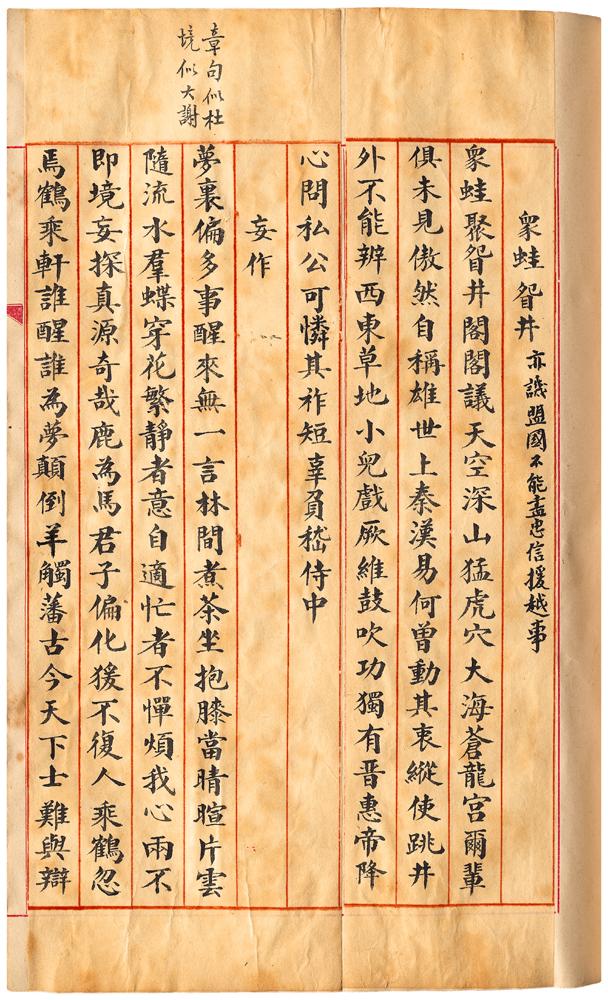 衆蛙眢井 亦譏盟國不能盡忠信援越事
衆蛙聚眢井閣閣議天空深山猛虎穴大海蒼龍宮爾輩
俱未見傲然自稱雄世上秦漢易何曾動其衷縱使跳井
外不能辨西東草地小兒戲厥維鼓吹功獨有晋惠帝降
心問私公可憐其祚短辜負嵇侍中
妄作
章句似杜
境似大謝
夢裏偏多事醒來無一言林間煮茶坐抱膝當晴暄片雲
隨流水羣蝶穿花繁靜者意自適忙者不憚煩我心兩不
即境妄探真源奇哉鹿為馬君子偏化猨不復人乘鶴忽
焉鶴乘軒誰醒誰為夢顛倒羊觸藩古今天下士難與辯